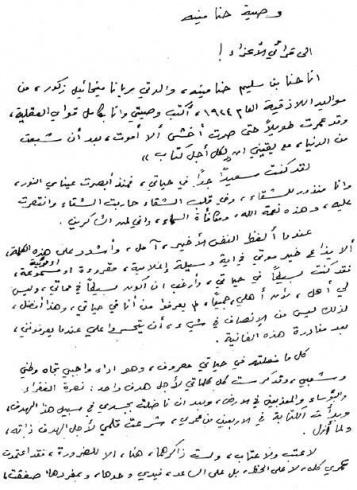 وصية حنا مينه
الى قرائي الأعزاء!
انا حنا بن سليم حنا مينه، والدتي مريانا ميخائيل زكور، من
مواليد اللاذقية العام ١٩٢٤، أكتب وصيتي وانا بكامل قواي العقلية،
وقد عمرت طويلاً حتى صرت أخشى ألا أموت، بعد أن شبعت
من الدنيا، مع يقيني انه «لكل أجل كتاب»
لقد كنت سعيداً جداً في حياتي، فمنذ أبصرت عيناي النور،
وانا منذور للشقاء، وفي قلب الشقاء حاربت الشقاء، وانتصرت
عليه، وهذه نعمة الله، ومكافأة السماء، واني لمن الشاكرين.
عندما ألفظ النفس الأخير، آمل، وأشدد على هذه الكلمة،
ألا يذاع خبر موتي في أية وسيلة إعلامية، مقروءة او مسموعة او مرئية،
فقد كنت بسيطاً في حياتي، وأرغب ان أكون بسيطاً في مماتي، وليس
لي أهل، لأن أهلي، جميعاً، لم يعرفوا من أنا في حياتي، وهذا أفضل،
لذلك ليس من الإنصاف في شيء، أن يتحسروا علي عندما يعرفونني،
بعد مغادرة هذه الفانية.
كل ما فعلته في حياتي معروف، وهو اداء واجبي تجاه وطني
وشعبي، وقد كرست كل كلماتي لأجل هدف واحد: نصرة الفقراء
والبؤساء والمعذبين في الارض، وبعد ان ناضلت بجسدي في سبيل هذا الهدف،
وبدأت الكتابة في الاربعين من عمري، شرعت قلمي لأجل الهدف ذاته،
ولما أزل.
لا عتب ولا عتاب، ولست ذاكرهما، هنا، الا للضرورة، فقد اعتمدت
عمري كله، لا على الحظ، بل على الساعد، فيدي وحدها، وبمفردها، صفقت،